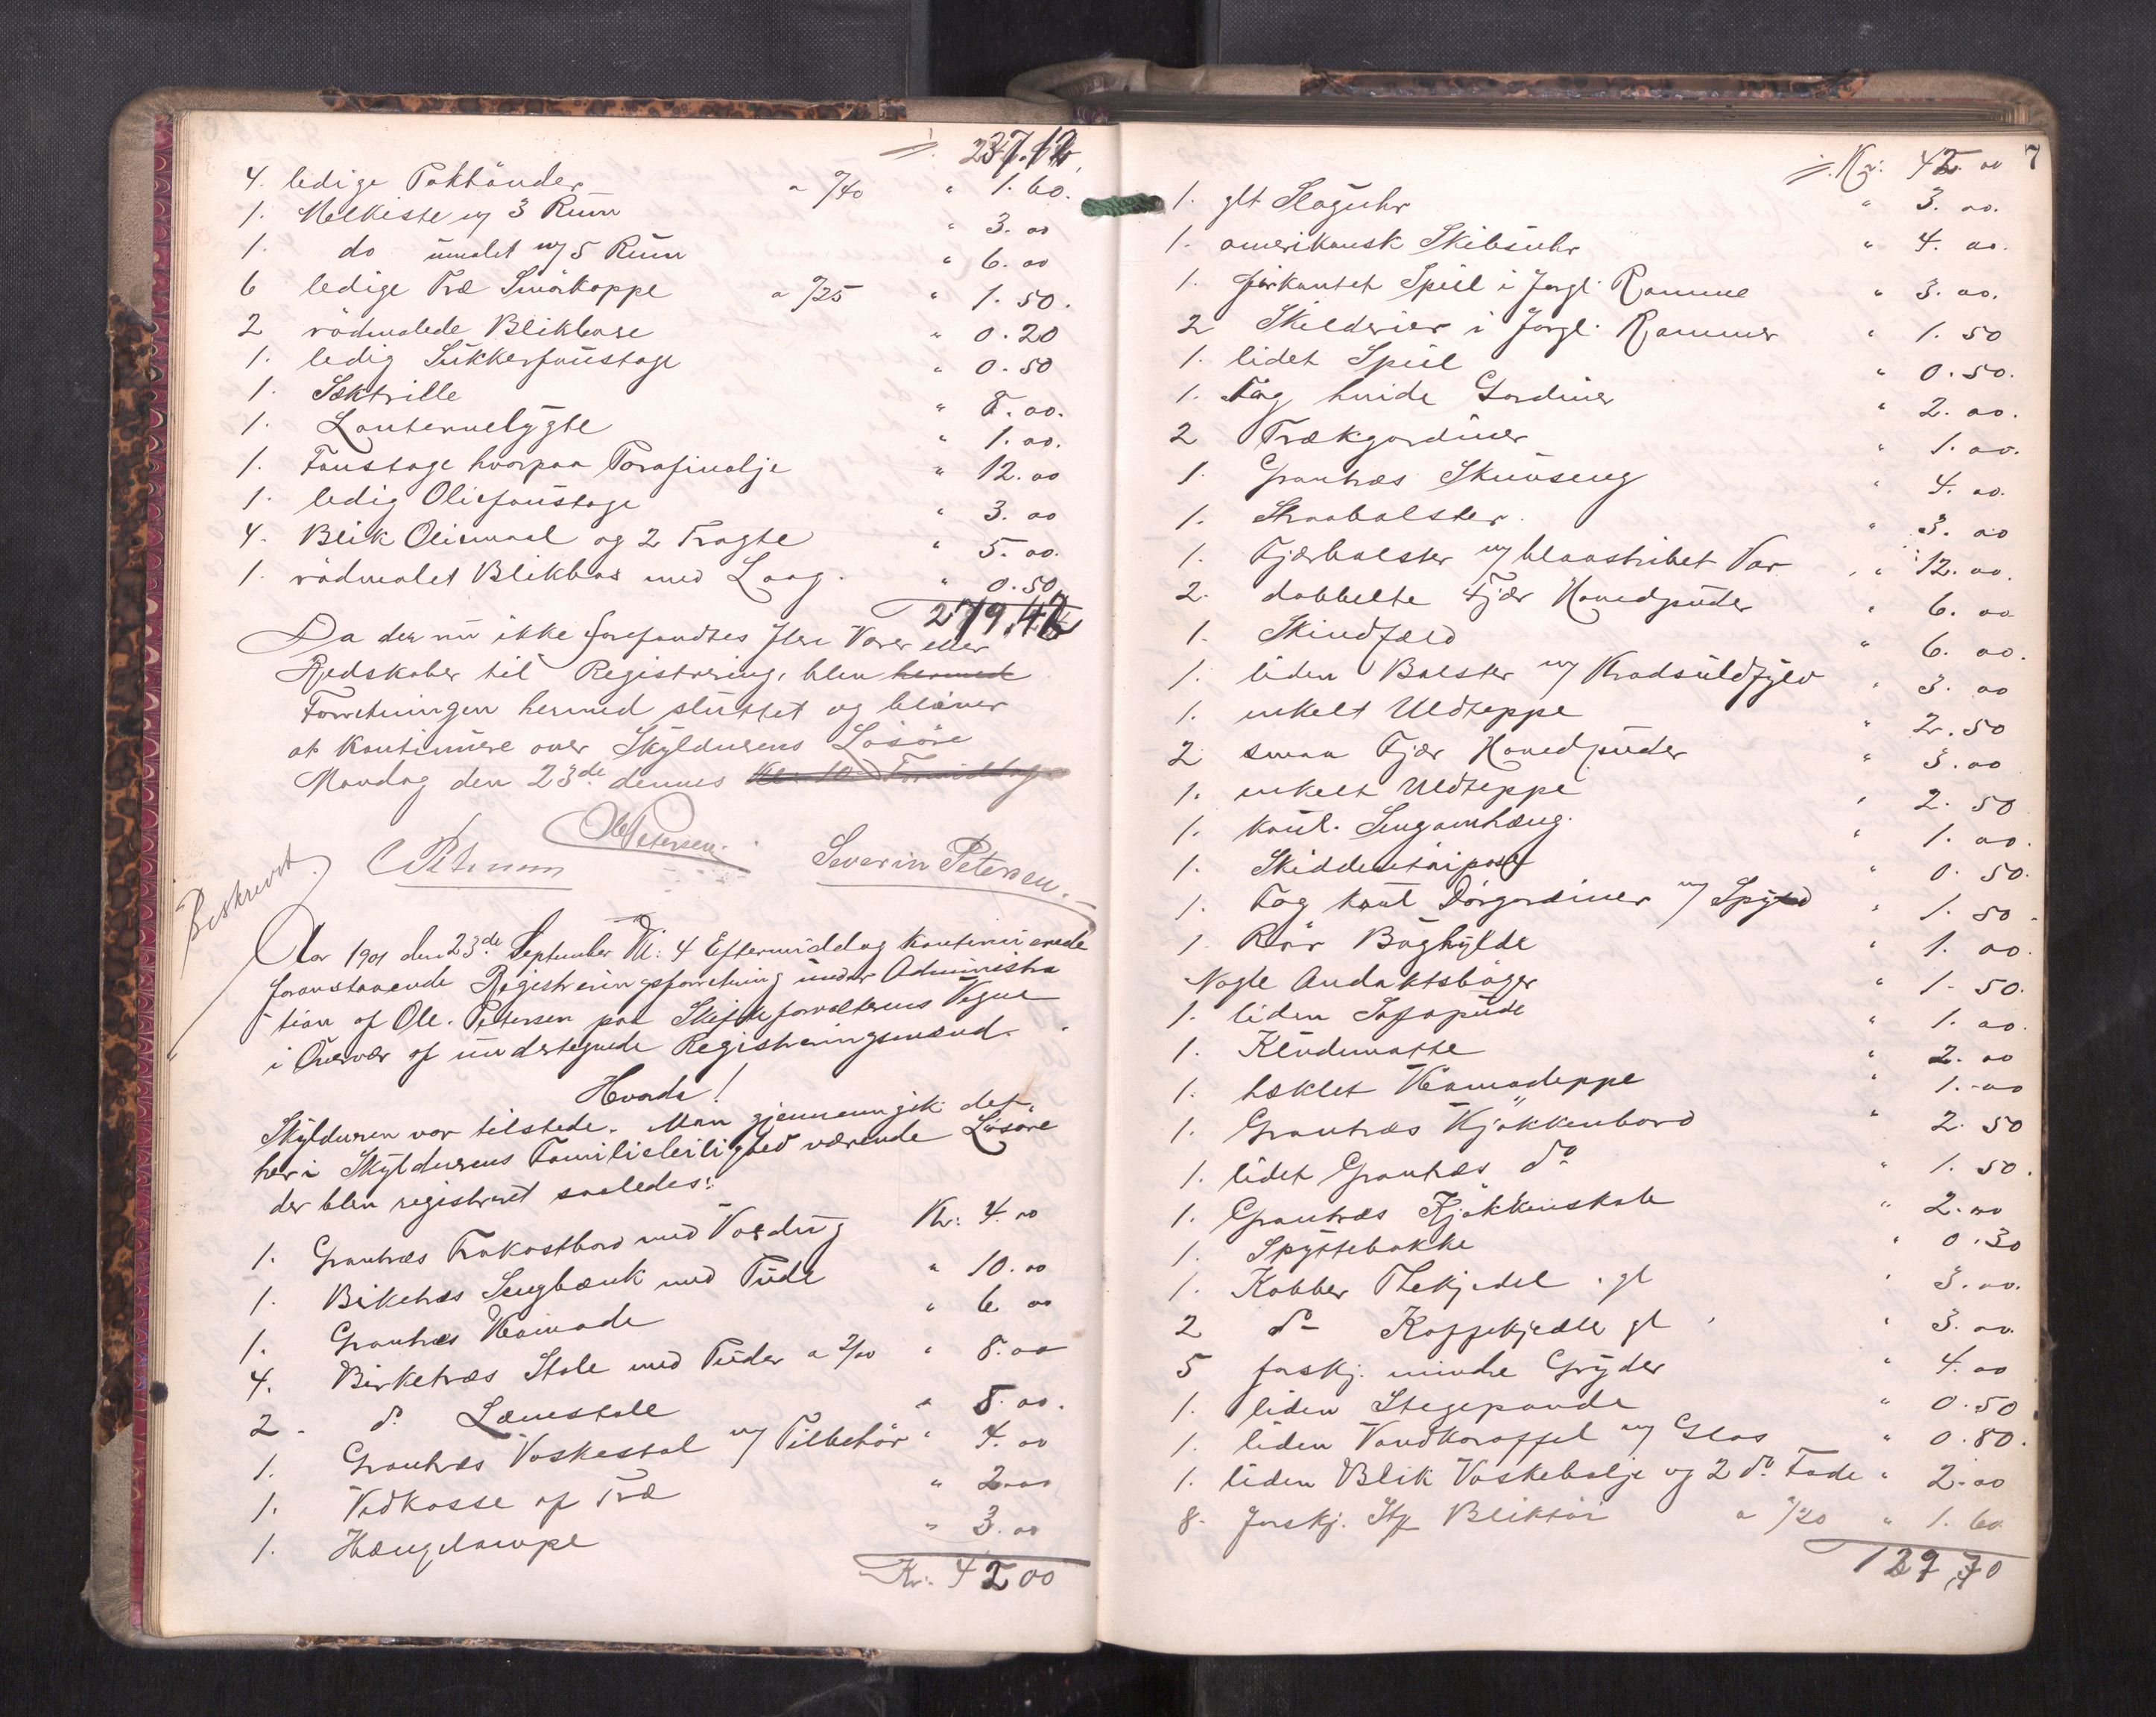 237.12
4. ledige Poktönder a "/40 " 1.60.
1. Melkiste m/ 3 Rum " 3.00
1. do umalet m/ 5 Rum " 6.00
6 ledige Træ Smörkoppe a "/25 " 1.50.
2 rödmalede Blikbase " 0.20
1. ledig Sukkerfoustage " 0.50
1. Sektrille " 8.00.
1. Lanternelygte " 1.00.
1. Foustage hvorpaa Parafinolje " 12.00
1. ledig Oliefoustage " 3.00
4. Blik Oliemaal og 2 Tragte " 5.00.
1. rödmalet Blikbox med Laag. " 0.50
279.42
Da der nu ikke forefandtes flere Varer eller
Redskaber til Registrering, blev hermed
Forretningen hermed sluttet og bliver
at kontinuere over Skyldnerens Lösöre
Mandag den 23de dennes Kl. 10 Formiddag
Ole Petersen.
Severin Petersen.
Beskrevet.
Aar 1901 den 23de September Kl: 4 Eftermiddag kontinuerede
foranstaaende Registreringsforretning under Administra
tion af Ole. Petersen paa Skifteforvalterens Vegne
i Overvær af undertegnede Registreringsmænd.
Hvorda!
Skyldneren var tilstede. Man gjennemgik det
her i Skyldnerens Familieleilighed værende Lösöre
der blev registreret saaledes:
1. Grantræs Frokostbord med Voxdug Kr: 4.00
1. Birketræs Sengbænk med Pude " 10.00
1. Grantræs Komode " 6.00
4. Birketræs Stole med Puder a 2/00 " 8.00
2. do. Lænestole " 5.00.
1. Grantræs Vaskestol m/ Tilbehör " 4.00
1. Vedkasse af Træ " 2.00
1. Hængelampe " 3.00
Kr: 42 00
7
Kr: 42.00
1. glt Slaguhr " 3.00.
1. amerikansk Skibsuhr " 4.00.
1. firkantet Speil i forgl. Ramme " 3.00.
2 Skilderier i forgl. Rammer " 1.50
1. lidet Speil " 0.50.
1. Fag hvide Gardiner " 2.00.
2 Trækgardiner " 1.00.
1. Grantræs Skuvseng " 4.00.
1. Straabolster. " 3.00
1. Fjærbolster m/ blaastribet Var " 12.00.
2. dobbelte Fjær Hovedpuder " 6.00
1. Skindfæld " 6.00.
1. liden Bolster m/ Kradsuldfyld " 3.00
1. enkelt Uldteppe " 2.50
2 smaa Fjær Hovedpuder " 3.00
1. enkelt Uldteppe " 2.50
1. koul. Sengomhæng. " 1.00.
1. Skiddentöipose " 0.50.
1. Fag koul Dörgardiner m/ Spyd " 1.50.
1. Rör Boghylde " 1.00.
Nogle Andaktsböger " 1.50.
1. liden Sofapude " 1.00.
1. Kludematte " 2.00
1. heklet Komodeppe " 1.00
1. Grantræs Kjökkenbord " 2.50
1. lidet Grantræs do " 1.50.
1. Grantræs Kjökkenskab " 2.00
1. Spyttebakke " 0.30
1. Kobber Thekjedel. gl " 3.00.
2 do Kaffekjedle gl " 3.00
5 forskj. mindre Gryder " 4.00
1. liden Stegepande " 0.50
1. liden Vandkaraffel m/ Glas " 0.80.
1. liden Blik Vaskebalje og 2 do. Fade " 2.00
8. forskj. Stk Bliktöi a "/20 " 1.60
127,70